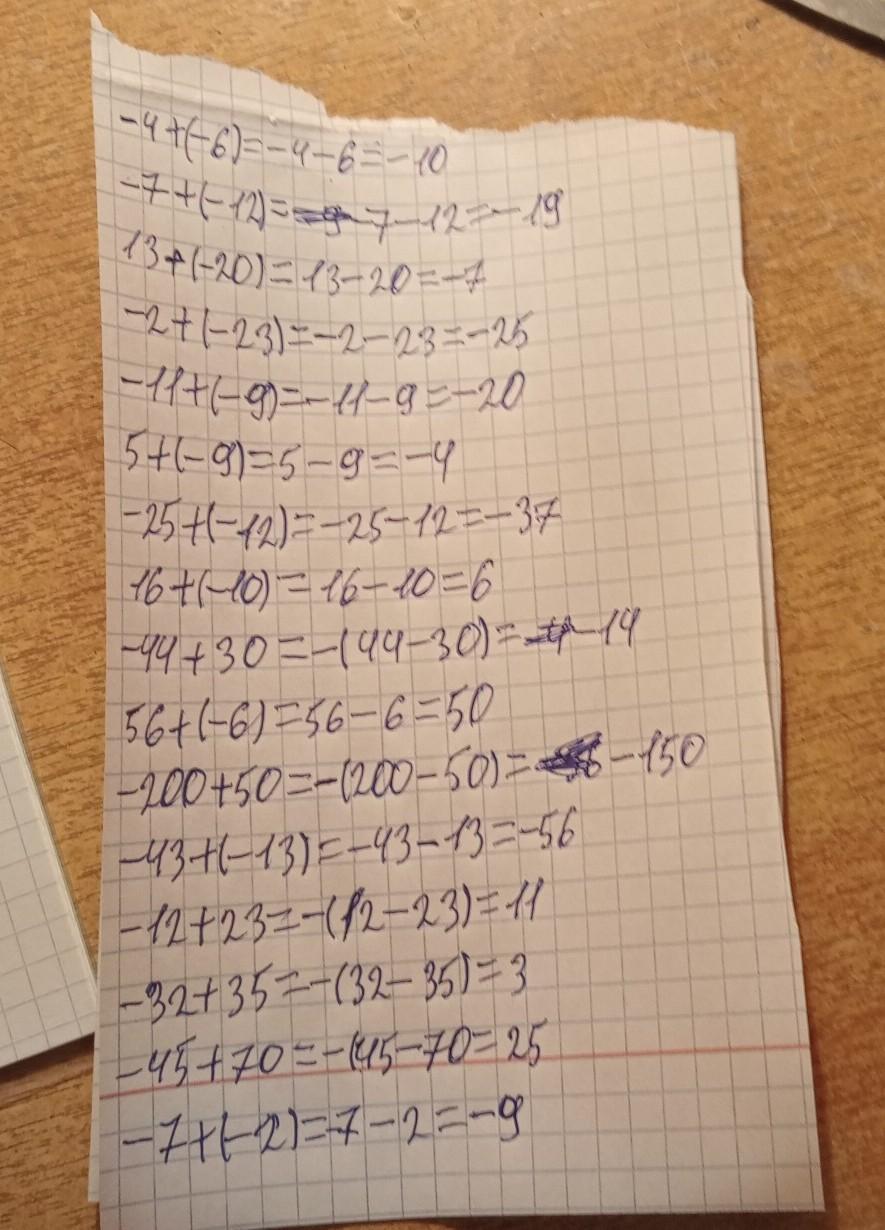 -4+(-6)=-4-6=-10
-7+(-12)=-7-12=-19
13+(-20)=13-20=-7
-2+(-23)=-2-23=-25
-11+(-9)=-11-9=-20
5+(-9)=5-9=-4
-25+(-12)=-25-12=-37
16+(-10)=16-10=6
-44+30=-(44-30)=-14
56+(-6)=56-6=50
-200+50=-(200-50)=-150
-43+(-13)=-43-13=-56
-12+23=-(12-23)=11
-32+35=-(32-35)=3
-45+70=-(45-70=25
-7+(-2)=-7-2=-9